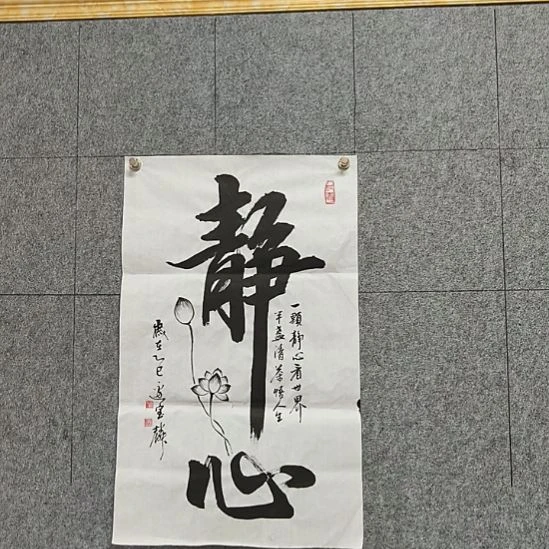 静心
一颗静心看世界
半盏清茶悟人生
岁在乙巳